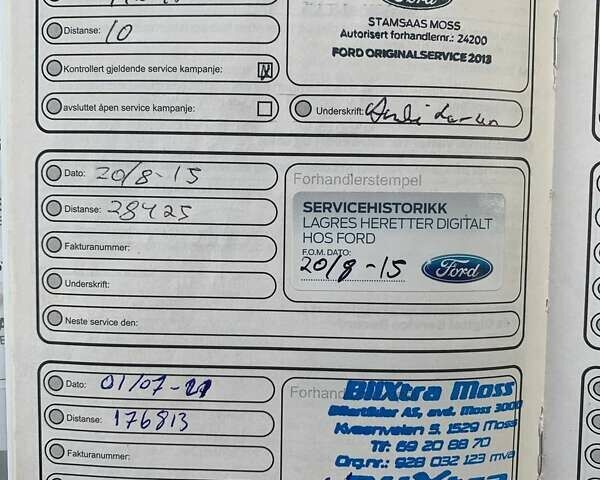 Distanse: 10
Kontrollert gjeldende service kampanje:
avsluttet åpen service kampanje:
Ford
STAMSAAS MOSS
Autorisert forhandlernr.: 24200
FORD ORIGINALSERVICE 2013
Underskrift:
Dato: 20/8-15
Distanse: 28425
Fakturanummer:
Underskrift:
Neste service den:
Forhandlerstempel
SERVICEHISTORIKK
LAGRES HERETTER DIGITALT
HOS FORD
F.O.M. DATO:
20/8-15
Ford
Dato: 01/07-21
Distanse: 176813
Fakturanummer:
Forhand
BilXtra Moss
Bilartikler AS, avd. Moss 3000
Kveernveien 5, 1529 Moss
Tlf: 69 20 88 70
Org.nr.: 928 032 123 mva